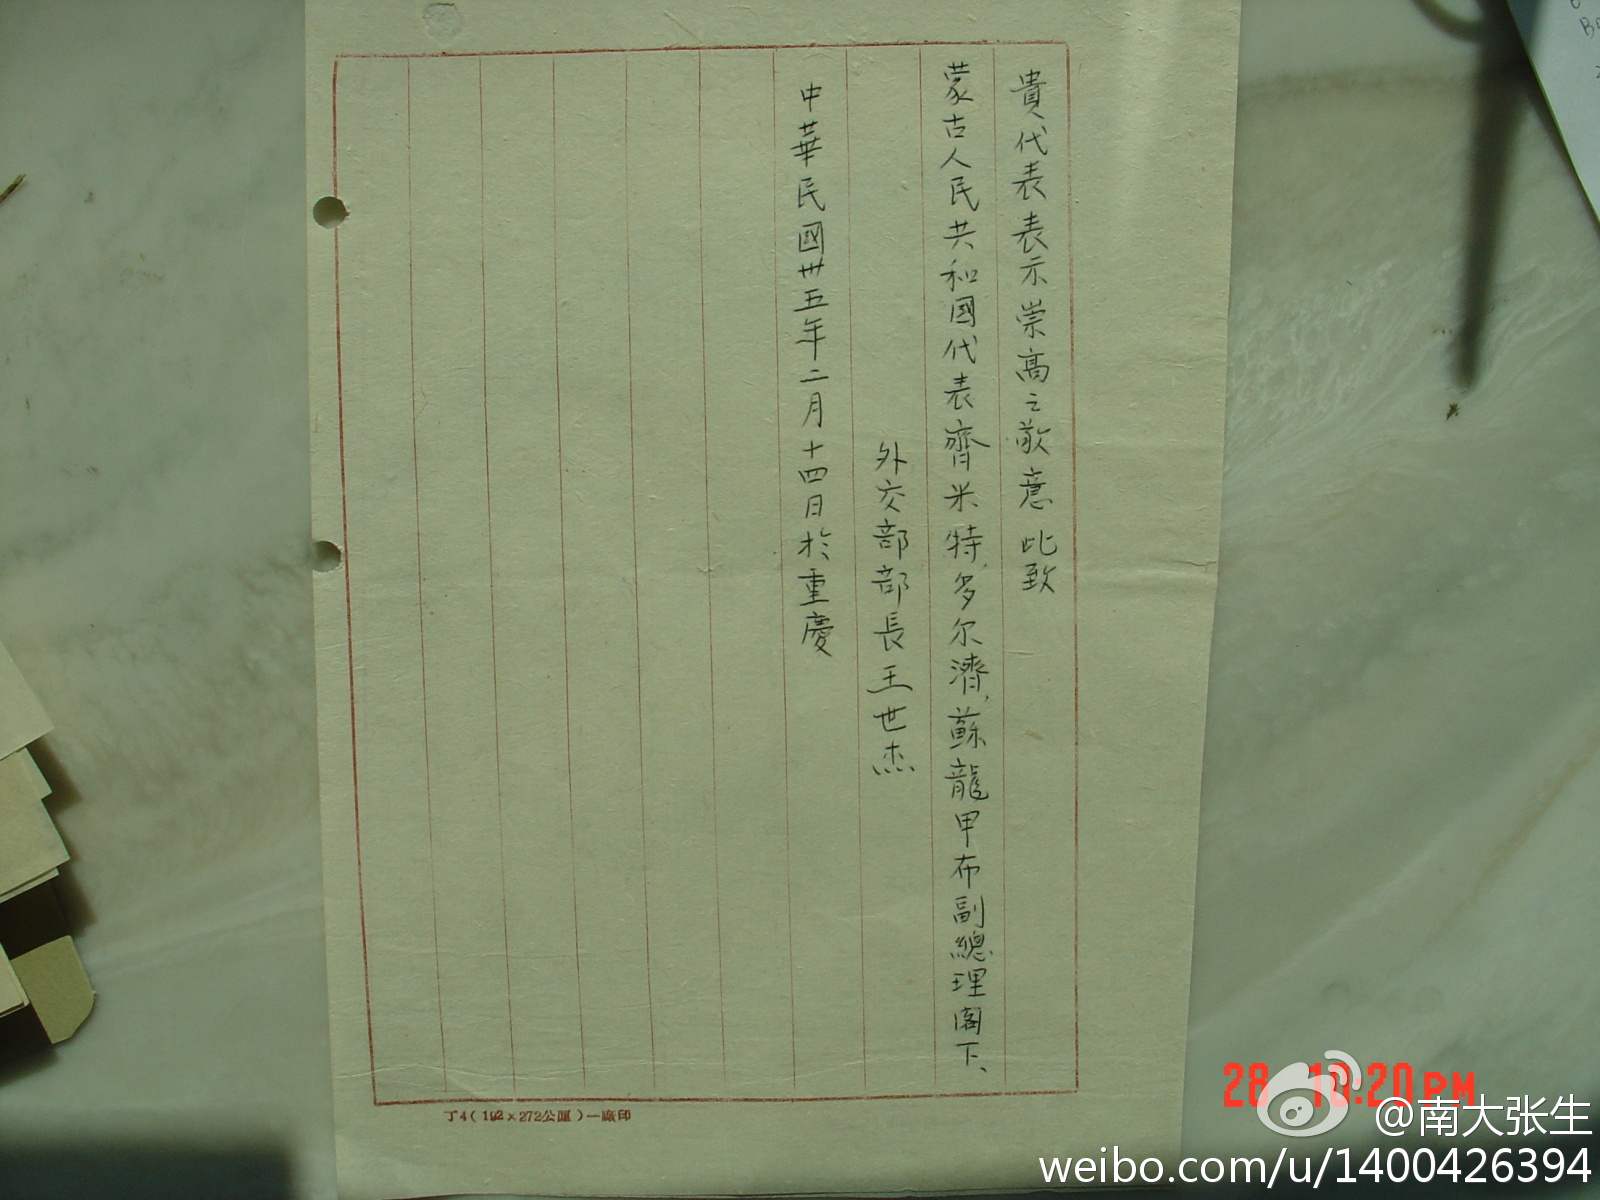 貴代表表示崇高之敬意 此致
蒙古人民共和國代表齊米特,多尔濟,蘇龍甲布副總理閣下、
外交部部長王世杰
中華民國卅五年二月十四日於重慶
丁4(192×272公厘)一廠印
28 10:20 PM
@南大张生
weibo.com/u/1400426394